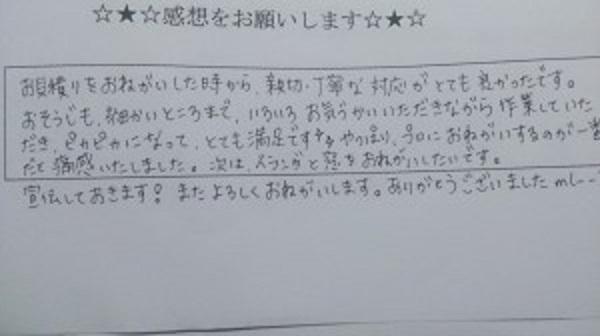 ☆★☆感想をお願いします☆★☆
お見積りをおねがいした時から、親切・丁寧な対応がとても良かったです。
おそうじも、細かいところまで、いろいろお気づかいいただきながら作業していた
だき、ピカピカになって、とても満足です やっぱり、プロにおねがいするのが一番
だと痛感いたしました。次は、ベランダと窓をおねがいしたいです。
宣伝しておきます! またよろしくおねがいします。ありがとうございました m(_ _